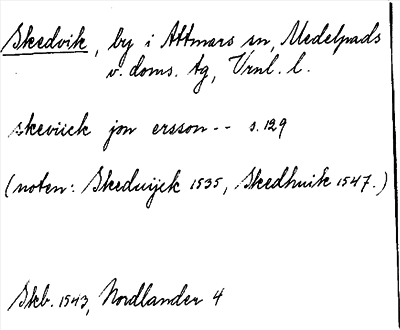 Skedvik, by i Attmars sn, Medelpads
v. doms. tg, Vrnl. l.
skeviick jon ersson -- s. 129
(noten: Skeduijck 1535, Skedhuik 1547.)
Skb. 1543, Nordlander 4